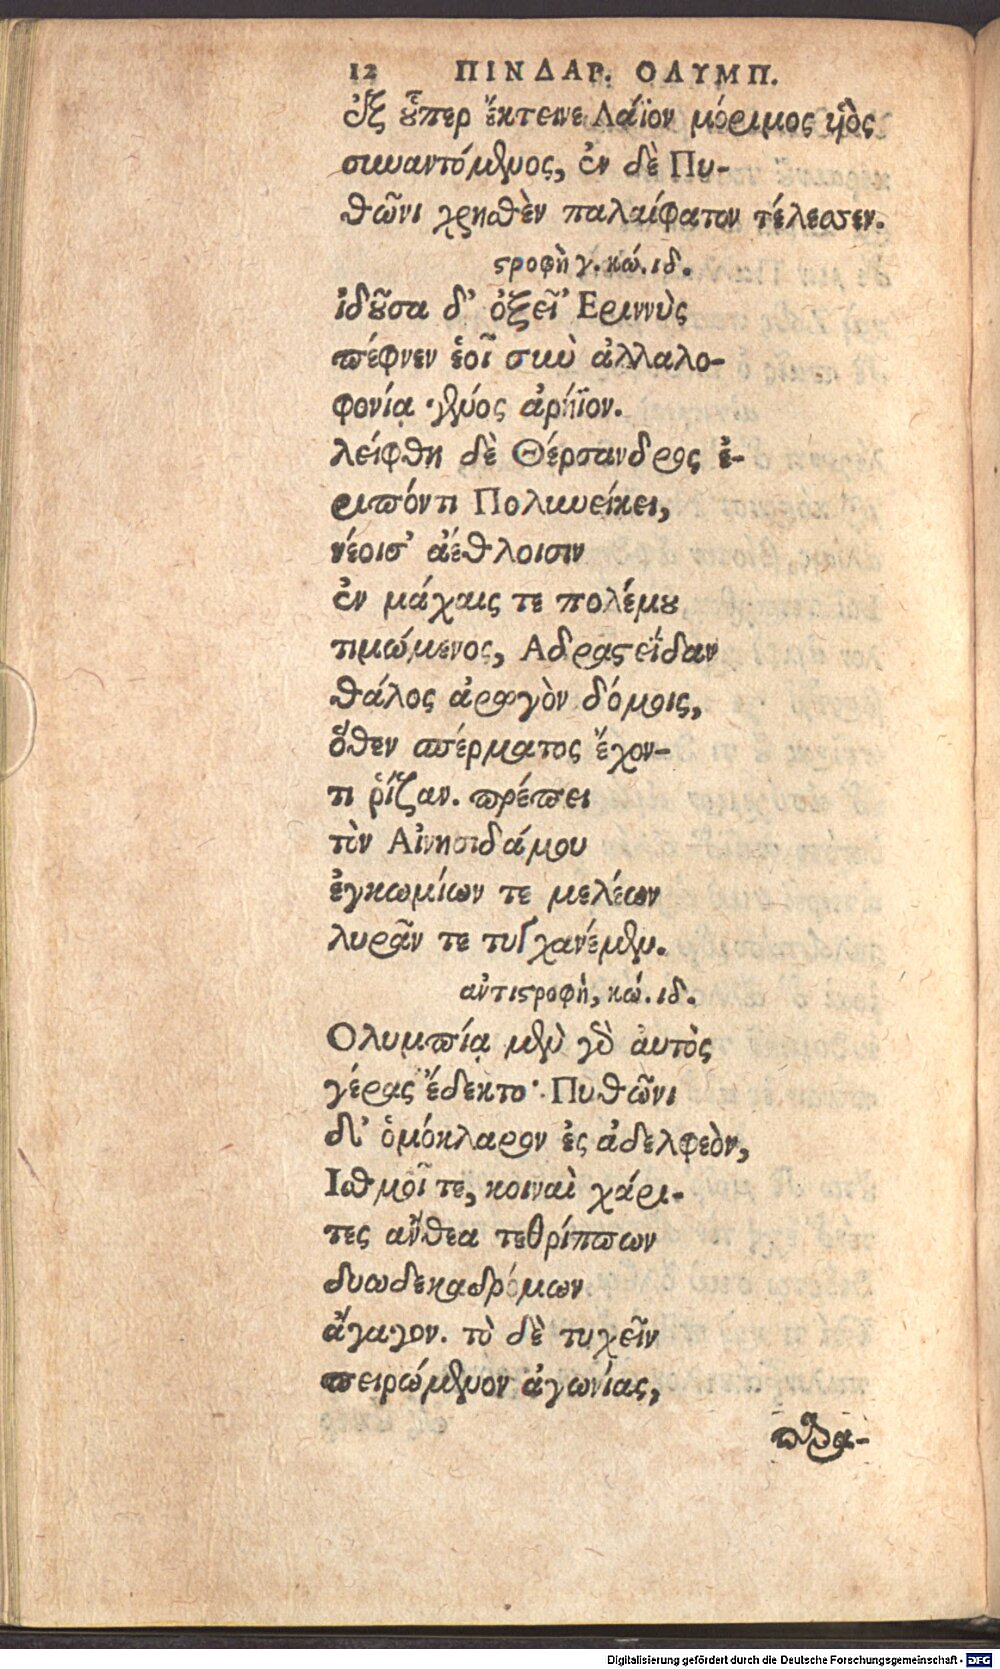 12 ΠΙΝΔΑΡ. ΟΛΥΜΠ.
ἐξ οὗπερ ἔκτεινε Λάϊον μόριμος ὑιὸς
συναντόμενος, ἐν δὲ Πυ-
θῶνι χρησθὲν παλαίφατον τέλεσσεν.
στροφὴ γ. κώ. ιδ.
ἰδοῦσα δ’ ὀξεῖ’ Εριννὺς
πέφνεν ἑοῖ σὺν ἀλλαλο-
φονίᾳ γένος ἀρήϊον.
λείφθη δὲ Θέρσανδρος ἐ-
ριπόντι Πολυνείκει,
νέοισ’ ἀέθλοισιν
ἐν μάχαις τε πολέμου
τιμώμενος, Αδραστεΐδαν
θάλος ἀρωγὸν δόμοις,
ὅθεν σπέρματος ἔχον-
τι ῥίζαν. πρέπει
τὸν Αἰνησιδάμου
ἐγκωμίων τε μελέων
λυρᾶν τε τυγχανέμεν.
αὐτιστροφὴ, κώ. ιδ.
Ολυμπίᾳ μὲν γὸ ἀυτὸς
γέρας ἔδεκτο· Πυθῶνι
δ’ ὁμόκλαρον ἐς ἀδελφεὸν,
Ισθμοῖ τε, κοιναὶ χάρι-
τες ἄνθεα τεθρίππων
δυωδεκαδρόμων
ἄγαγον. τὸ δὲ τυχεῖν
πειρώμενον ἀγωνίας,
παρα-
Digitalisierung gefördert durch die Deutsche Forschungsgemeinschaft - DFG